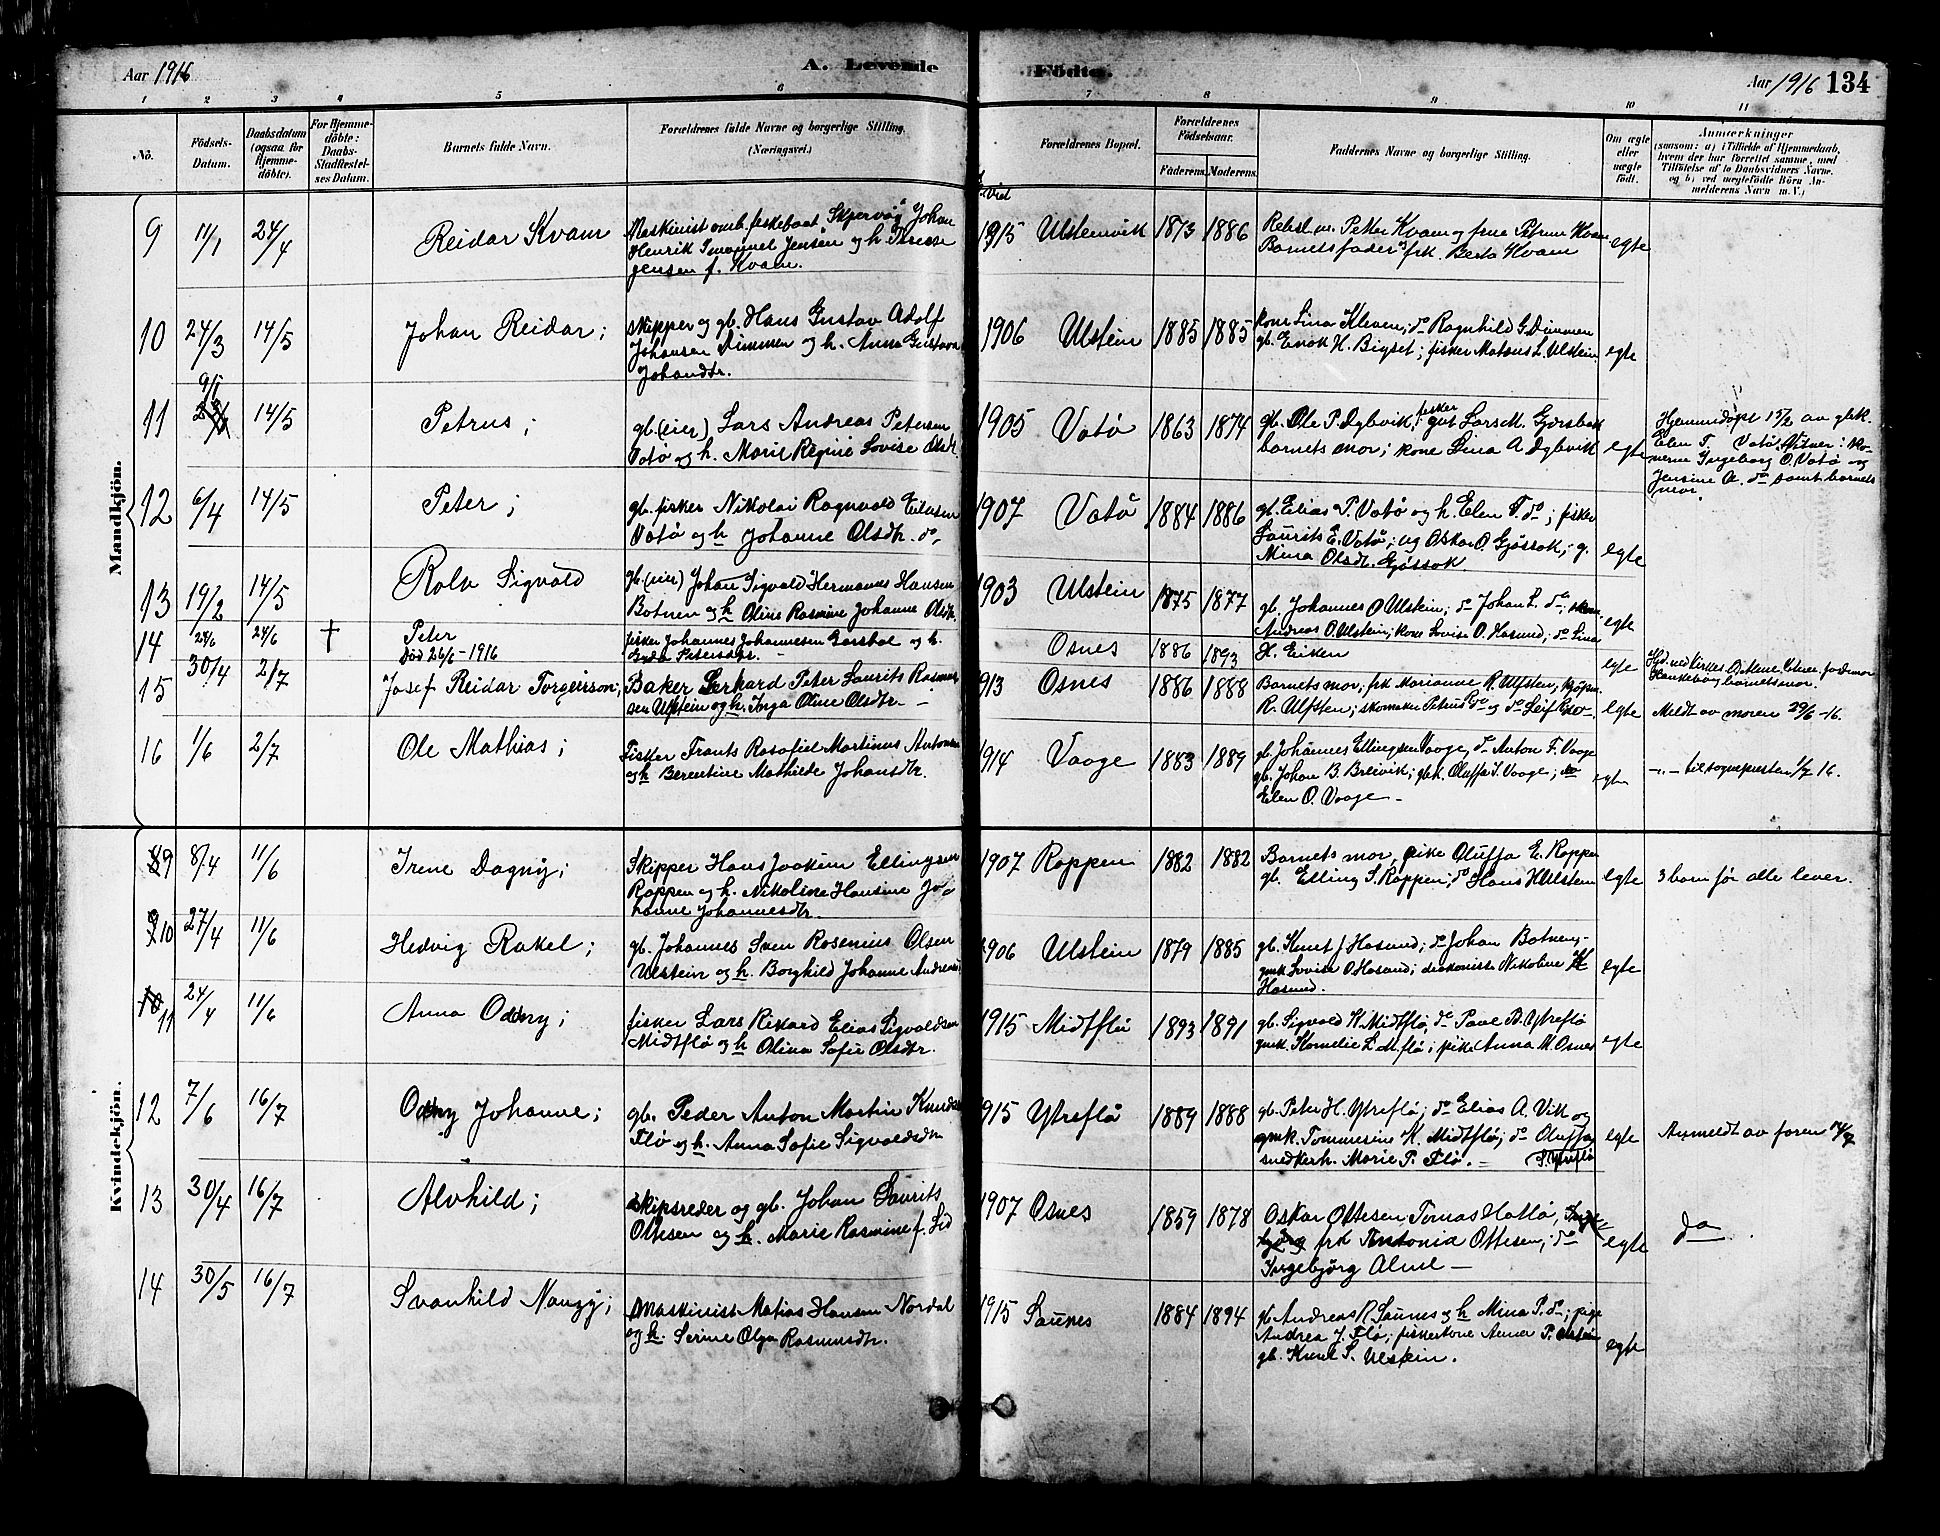 Aar 1916
A. Levende
Födte.
Aar 1916 134
1 2 3 4 5 6 7 8 9 10 11
No.
Födsels-
Datum.
Daabsdatum
(ogsaa for
Hjemme-
döbte).
For Hjemme-
döbte:
Daabs-
Stadfæstel-
ses Datum.
Barnets fulde Navn.
Forældrenes fulde Navne og borgerlige Stilling.
(Næringsvei.)
Forældrenes Bopæl.
Forældrenes
Födselsaar.
Faderens. Moderens.
Faddernes Navne og borgerlige Stilling.
Om ægte
eller
uægte
födt.
Anmærkninger
(saasom: a) i Tilfælde af Hjemmedaab,
hvem der har forrettet samme, med
Tilföielse af to Daabsvidners Navne.
og b) ved uægtefödte Börn An-
melderens Navn m. V.)
Mandkjön.
9 11/1 24/4 Reidar Kvam
Maskinist omb. fiskebaat "Skjervøg" Johan
Henrik Imanuel Jensen og h. Therese
Jensen f. Kvam.
1915 Ulsteinvik 1873 1886
Peter Kvam og frue Petrine Kvam
Barnets fader og frk. Berta Kvam
egte
10 24/3 14/5 Johan Reidar;
Skipper og gb. Hans Gustav Adolf
Johansen Dimmen og h. Anna Gustava
Johansdtr.
1906 Ulstein 1885 1885
kone Lina Kleven; do Ragnhild G. Dimmen
gb. Enok H. Bigset; fisker Mateus L. Ulstein
egte
11 9/1 14/5 Petrus;
gb. (eier) Lars Andreas Petersen
Vatø og h. Marie Regine Lovise Olsdr.
1905 Vatø 1863 1874
gb. Ole P. Dybvik, fisker gut Lars M. Gjersbak
barnets mor; kone Lina A Dybvik
egte
Hjemmedøpt 13/2 av gbk.
Elen T. Vatø. Vitner: ko-
nerne Ingeborg O. Vatø og
Jensine A. do samt barnets
mor.
12 6/4 14/5 Peter;
gb. fisker Nikolai Ragnvald Eliasen
Vatø og h Johanne Olsdtr. do,
1907 Vatø 1884 1886
gb. Elias P. Vatø og h. Elen T. do; fisker
Laurits E. Vatø; ug Oskar O. Gjøssok; g.
Mina Olsdt. Gjøssok
egte
13 19/2 14/5 Rolv Sigvald
gb. (eier) Johan Sigvald Hermanus Hansen
Botnen og h Oline Rasmine Johanne Olsdtr.
1903 Ulstein 1875 1877
gb. Johannes O Ulstein; do Johan L. do;
Andreas O. Ulstein; kone Lovise O. Hasund; do Lina
H. Eiken
egte
14 24/6 24/6 † Peter
Død 26/6-1916
fisker Johannes Johannesen Garshol og h.
Gyda Petersdtr.
Osnes 1886 1893
egte
15 30/4 2/7 Josef Reidar Torgeirson;
Baker Gerhard Peter Laurits Rasmus-
sen Ulfstein og h. Inga Oline Olsdtr.
1913 Osnes 1886 1888
Barnets mor, frk Marianne R. Ulfsten, kjøpm.
R. Ulfsten; skomaker Petrus do og do Leif
egte Meldt av moren 29/6-16.
16 1/6 2/7 Ole Mathias;
Fisker Frants Rasofiel Martinus Antonsen
og h Berentine Mathilde Johansdtr.
1914 Vaage 1883 1889
gb. Johannes Ellingsen Vaage, do Anton F. Vaage
gb. Johan B. Breivik; gbk. Oluffa S. Vaage; do
Elen O. Vaage
egte
-"- til sognepresten 1/7 16.
Kvindekjön.
9 8/4 11/6 Irene Dagny;
Skipper Hans Joakim Ellingsen
Rappen og h. Nikoline Hansine Jo-
hanne Johannesdtr.
1907 Rappen 1882 1882
Barnets mor, pike Oluffa E. Rappen
gb. Elling S. Rappen; do Hans K Ulstein
egte 3 barn før alle lever.
10 27/4 11/6 Hedvig Rakel;
gb. Johannes Sven Rosenius Olsen
Ulstein og h. Borghild Johanne Andreas
1906 Ulstein 1879 1885
gb. Knut J Hasund; do Johan Botnen;
gmk Lovise O. Hasund; diakonisse Nikoline K
Hasund.
egte
11 24/4 11/6 Anna Oddny;
fisker Lars Rikard Elias Sigvaldsen
Midtflø og h Olina Sofie Olsdtr.
1915 Midtflø 1893 1891
gb. Sigvald K. Midtflø, do Paul A. Ytreflø
gmk. Kornelie L. M.flø; pike Anna M. Osnes
egte
12 7/6 16/7 Oddny Johanne;
gb. Peder Anton Martin Knudsen
Flø og h. Anna Sofie Sigvaldsdtr
1915 Ytreflø 1889 1888
gb. Peter H. Ytreflø; do Elias A. Vik og
gmk. Tommesine K. Midtflø; do Oluffa
snedkerh. Marie P. Flø. S. Ytreflø
egte Anmeldt av faren
13 30/4 16/7 Alvhild;
Skipsreder og gb. Johan Laurits
Ottesen og h. Marie Rasmine f. Lid
1907 Osnes 1859 1878
Oskar Ottesen Tomas Hatlø,
frk Antonia Ottesen; do
Ingebjørg Alme
egte do
14 30/5 16/7 Svanhild Nanzy;
Maskinist Matias Hansen Nordal
og h. Serine Olga Rasmusdtr.
1915 Saunes 1884 1894
gb. Andreas R Saunes og h Mina P. do; pige
Andrea J. Flø; fiskerkone Anna P. Ulstein
gb. Knut S. Ulstein.
egte